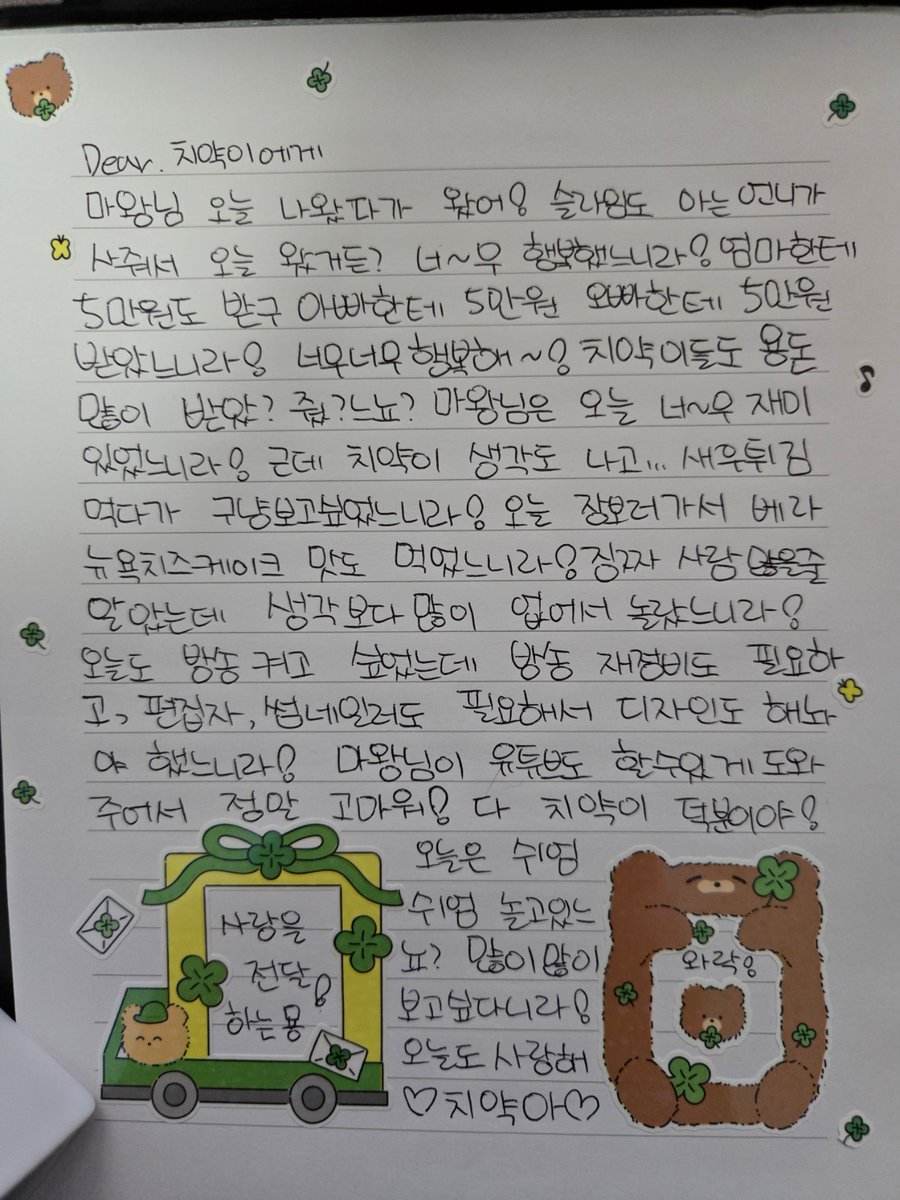 Dear. 치약이에게
마왕님 오늘 나왔다가 왔어! 슬라임도 아는 언니가
사줘서 오늘 왔거든? 너~무 행복했느니라! 엄마한테
5만원도 받구 아빠한테 5만원 오빠한테 5만원
받았느니라! 너무너무 행복해~! 치약이들도 용돈
많이 받았? 줬?느뇨? 마왕님은 오늘 너~무 재미
있었느니라! 근데 치약이 생각도 나고... 새우튀김
먹다가 구냥보고싶었느니라! 오늘 장보러가서 베라
뉴욕치즈케이크 맛도 먹었느니라! 징쨔 사람 많을줄
알았는데 생각보다 많이 없어서 놀랐느니라!
오늘도 방송 켜고 싶었는데 방송 재정비도 필요하
고, 편집자, 썸네일러도 필요해서 디자인도 해놔
야 했느니라! 마왕님이 유튜브도 할수있게 도와
주어서 정말 고마워! 다 치약이 덕분이야!
오늘은 쉬엄
쉬엄 놀고있느
뇨? 많이많이
보고싶다니라!
오늘도 사랑해
♡치약아♡
사랑을
전달
하는 몽!
와락!